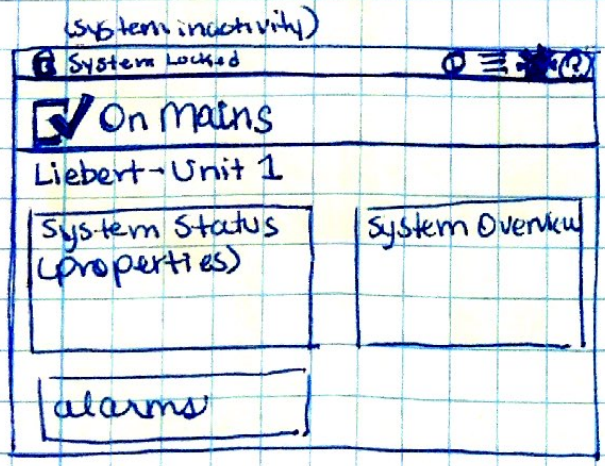 (system inactivity)
System Locked
?
On Mains
Liebert-Unit 1
System Status
(properties)
System Overview
alarms